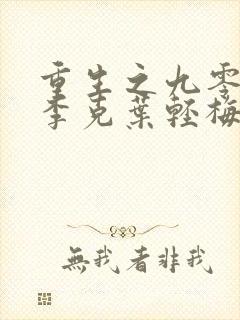 重生之九零
李克葉輕梅
無我者非我